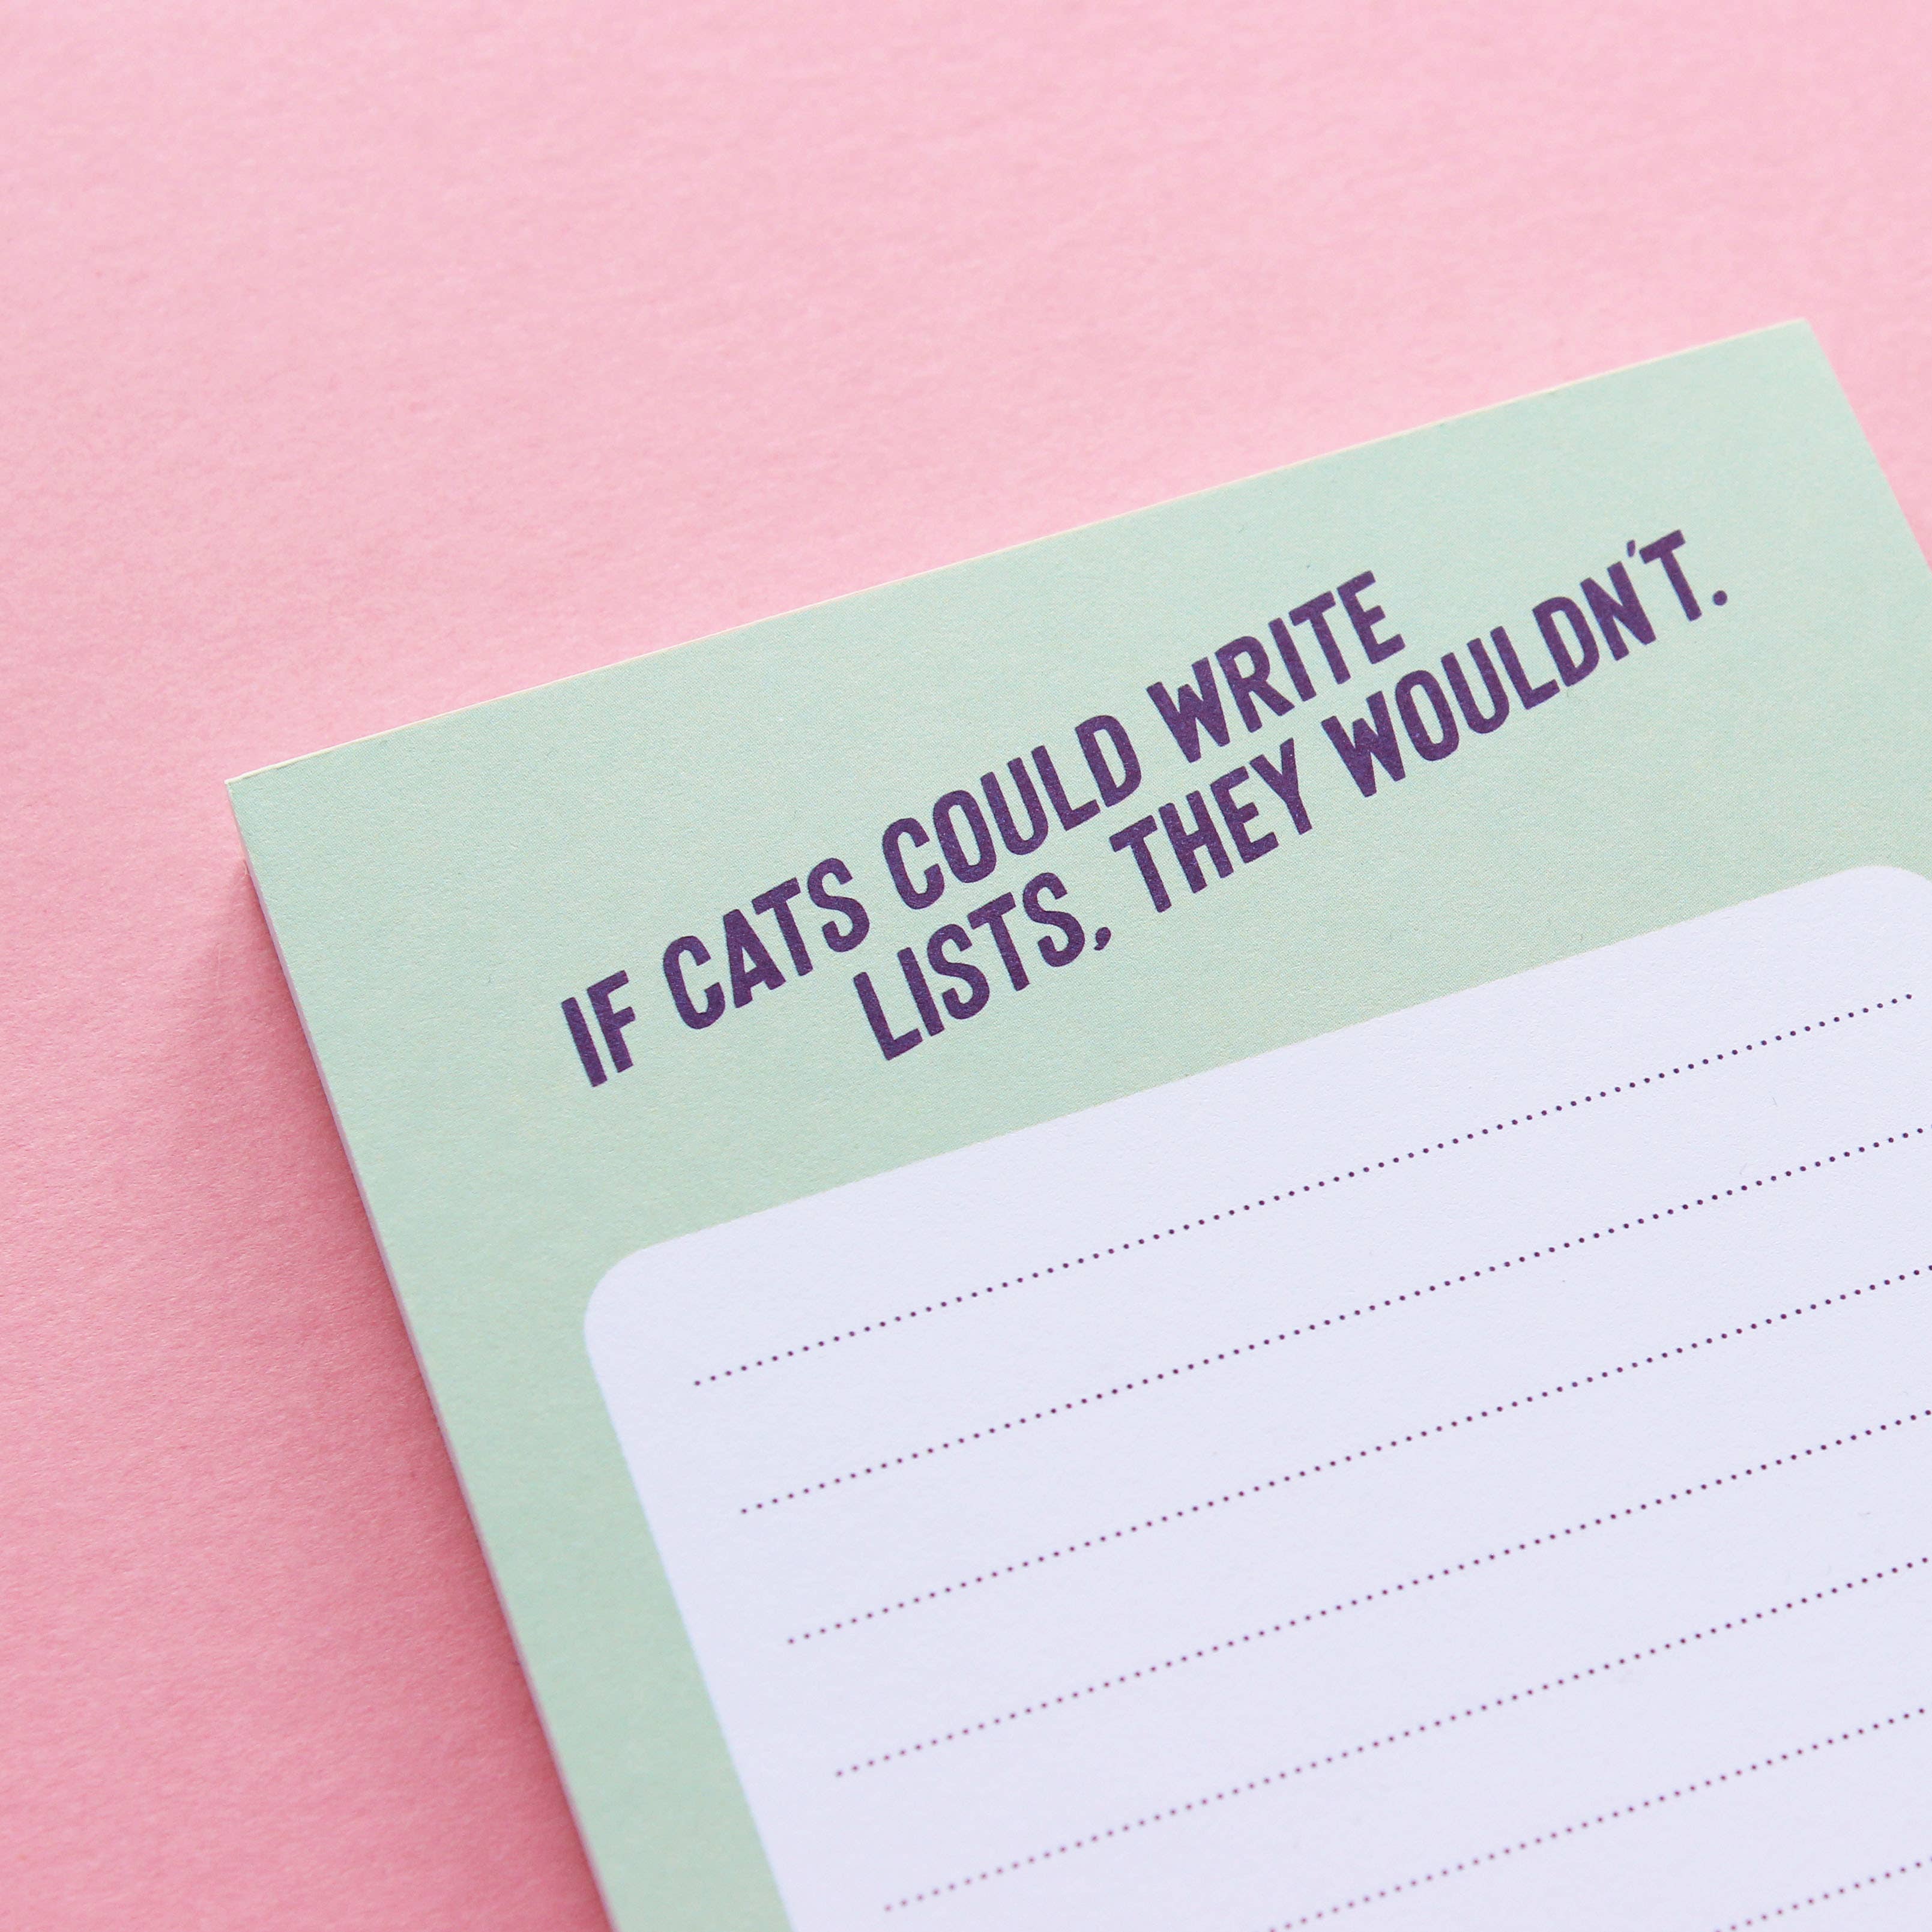 IF CATS COULD WRITE
LISTS, THEY WOULDN'T.